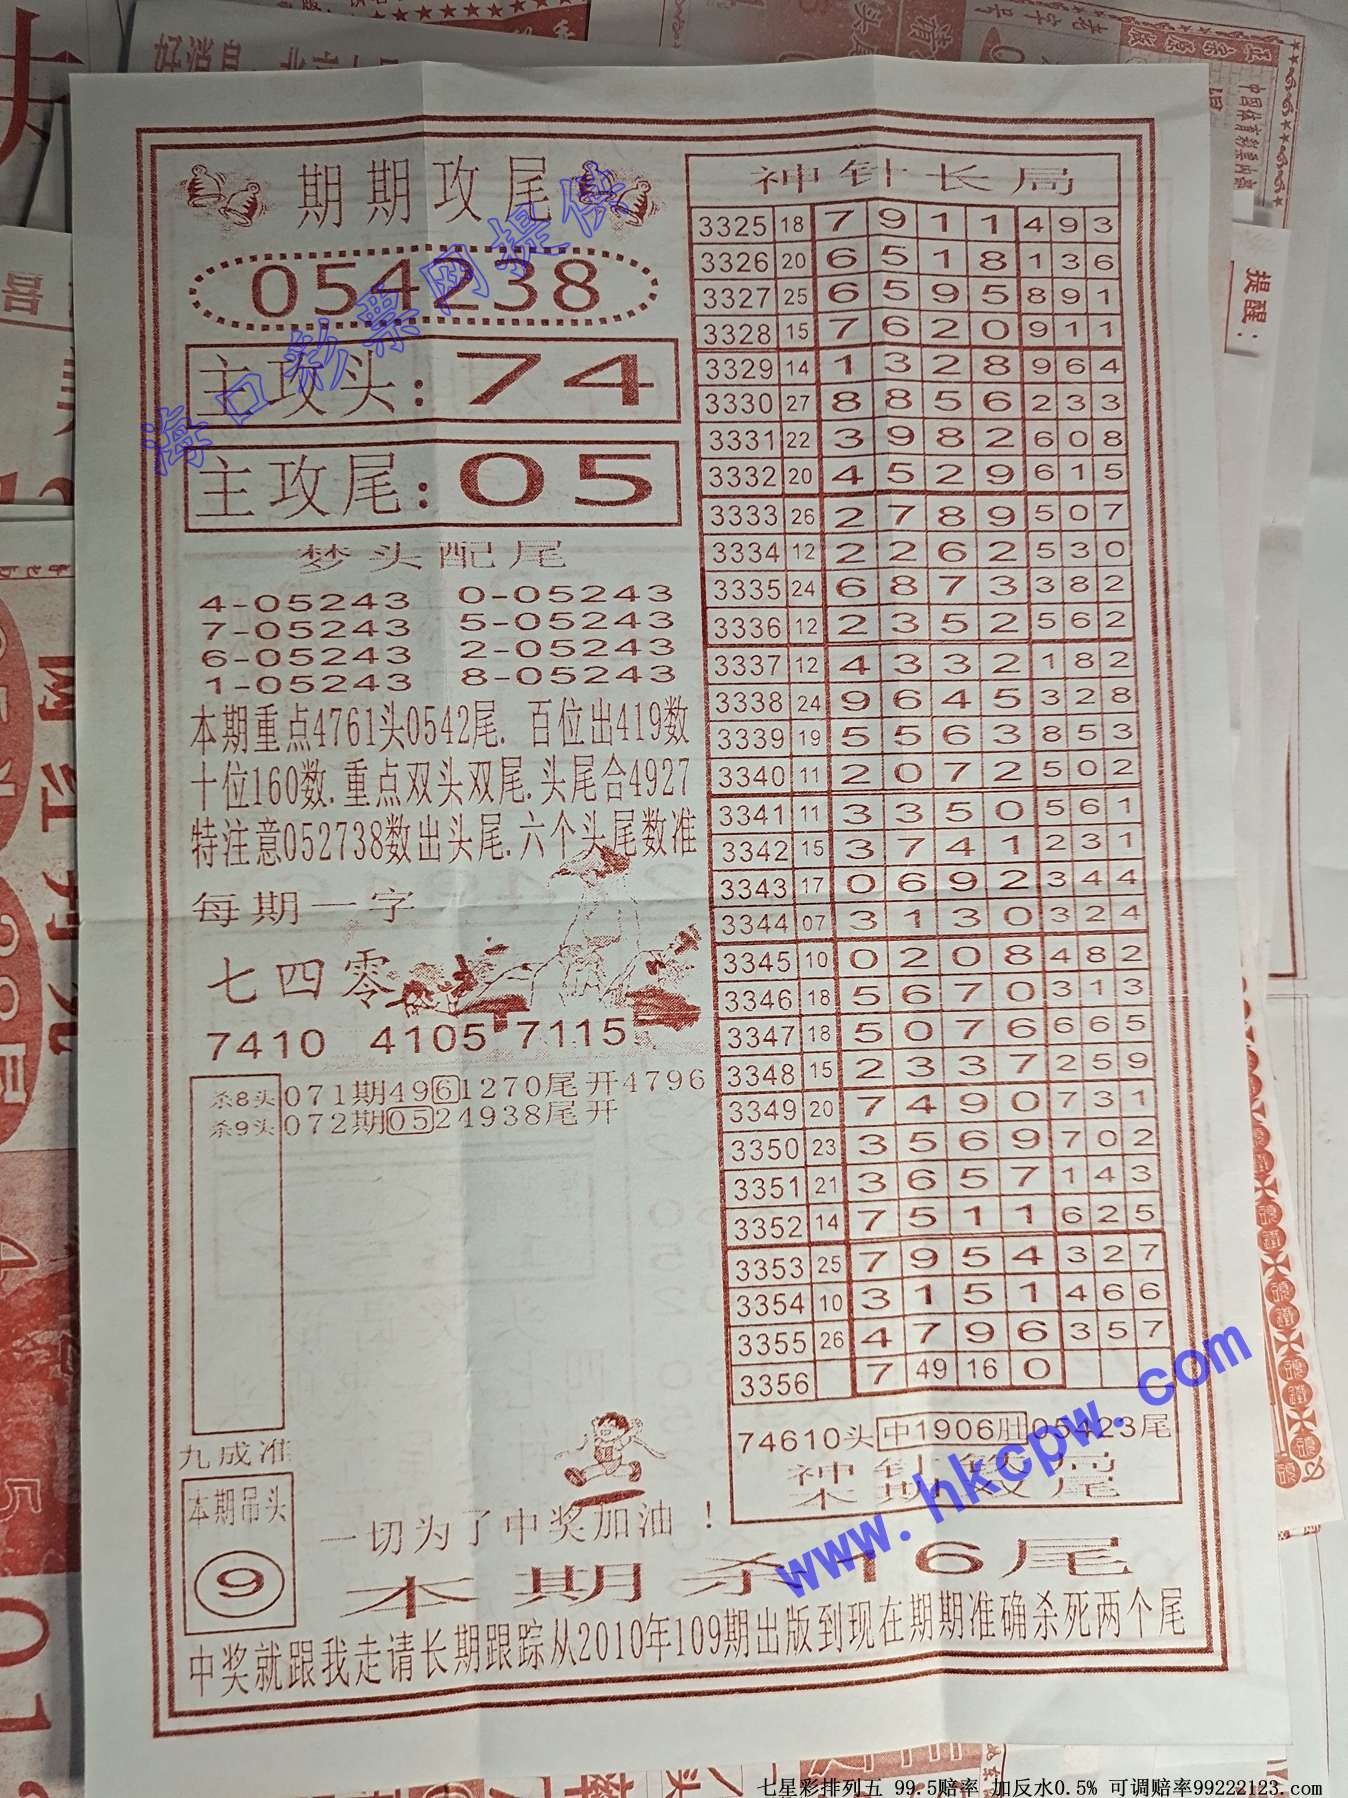 期期攻尾
054238
主攻头:74
主攻尾:05
梦头配尾
4-05243 0-05243
7-05243 5-05243
6-05243 2-05243
1-05243 8-05243
本期重点4761头0542尾.百位出419数
十位160数.重点双头双尾.头尾合4927
特注意052738数出头尾.六个头尾数准
每期一字
七四零
7410 4105 7115
杀8头 071期4961270尾开4796
杀9头 072期0524938尾开
九成准
本期吊头
9
一切为了中奖加油!
神针长局
3325 18 7 9 1 1 4 9 3
3326 20 6 5 1 8 1 3 6
3327 25 6 5 9 5 8 9 1
3328 15 7 6 2 0 9 1 1
3329 14 1 3 2 8 9 6 4
3330 27 8 8 5 6 2 3 3
3331 22 3 9 8 2 6 0 8
3332 20 4 5 2 9 6 1 5
3333 26 2 7 8 9 5 0 7
3334 12 2 2 6 2 5 3 0
3335 24 6 8 7 3 3 8 2
3336 12 2 3 5 2 5 6 2
3337 12 4 3 3 2 1 8 2
3338 24 9 6 4 5 3 2 8
3339 19 5 5 6 3 8 5 3
3340 11 2 0 7 2 5 0 2
3341 11 3 3 5 0 5 6 1
3342 15 3 7 4 1 2 3 1
3343 17 0 6 9 2 3 4 4
3344 07 3 1 3 0 3 2 4
3345 10 0 2 0 8 4 8 2
3346 18 5 6 7 0 3 1 3
3347 18 5 0 7 6 6 6 5
3348 15 2 3 3 7 2 5 9
3349 20 7 4 9 0 7 3 1
3350 23 3 5 6 9 7 0 2
3351 21 3 6 5 7 1 4 3
3352 14 7 5 1 1 6 2 5
3353 25 7 9 5 4 3 2 7
3354 10 3 1 5 1 4 6 6
3355 26 4 7 9 6 3 5 7
3356 7 49 16 0
74610头 中1906肚 05423尾
本期杀16尾
中奖就跟我走请长期跟踪从2010年109期出版到现在期期准确杀死两个尾
海口彩票网提供
www.hkcpw.com
提醒:
七星彩排列五 99.5赔率 加反水0.5% 可调赔率99222123.com